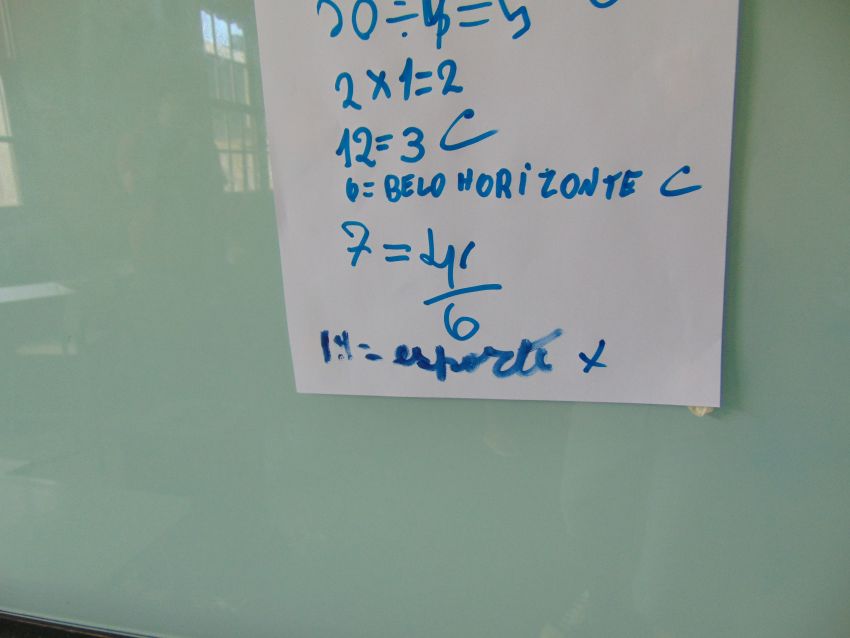 20÷4=5
2×1=2
12=3 C
6=BELO HORIZONTE C
7=4/6
14=esporte x